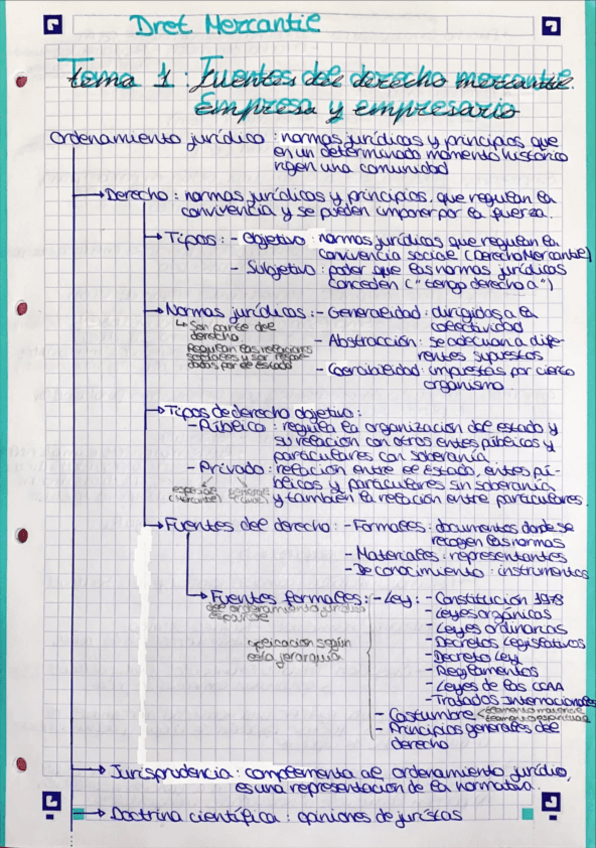 Dret Mercantil
Tema 1: Fuentes del derecho mercantil.
Empresa y empresario
Ordenamiento jurídico: normas jurídicas y principios que
en un determinado momento histórico
rigen una comunidad
Derecho: normas jurídicas y principios, que regulan la
convivencia y se pueden imponer por la fuerza.
Tipos: - Objetivo: normas jurídicas que regulan la
convivencia social (Derecho Mercantil)
- Subjetivo: poder que las normas jurídicas
conceden ("tengo derecho a")
Normas jurídicas: - Generalidad: dirigidas a la
colectividad
↳ Son parte del
derecho
- Abstracción: se adecuan a dife-
rentes supuestos
Regulan las relaciones
sociales y son respal-
dadas por el estado
- Coercibilidad: impuestas por cierto
organismo.
Tipos de derecho objetivo:
- Público: regula la organización del estado y
su relación con otros entes públicos y
particulares con soberanía
- Privado: relación entre el estado, entes pú-
blicos y particulares sin soberanía
y también la relación entre particulares.
especial (mercantil)
general (civil)
Fuentes del derecho: - Formales: documentos donde se
recogen las normas
- Materiales: representantes
- De conocimiento: instrumentos
Fuentes formales: - Ley: - Constitución 1978
del ordenamiento jurídico
español
- Leyes orgánicas
- Leyes ordinarias
aplicación según
esta jerarquía
- Decretos Legislativos
- Decreto Ley
- Reglamentos
- Leyes de las CCAA
- Tratados Internacionales
- Costumbre
elemento material
elemento espiritual
- Principios generales del
derecho
Jurisprudencia: complementa al ordenamiento jurídio,
es una representación de la normativa.
Doctrina científica: opiniones de juristas